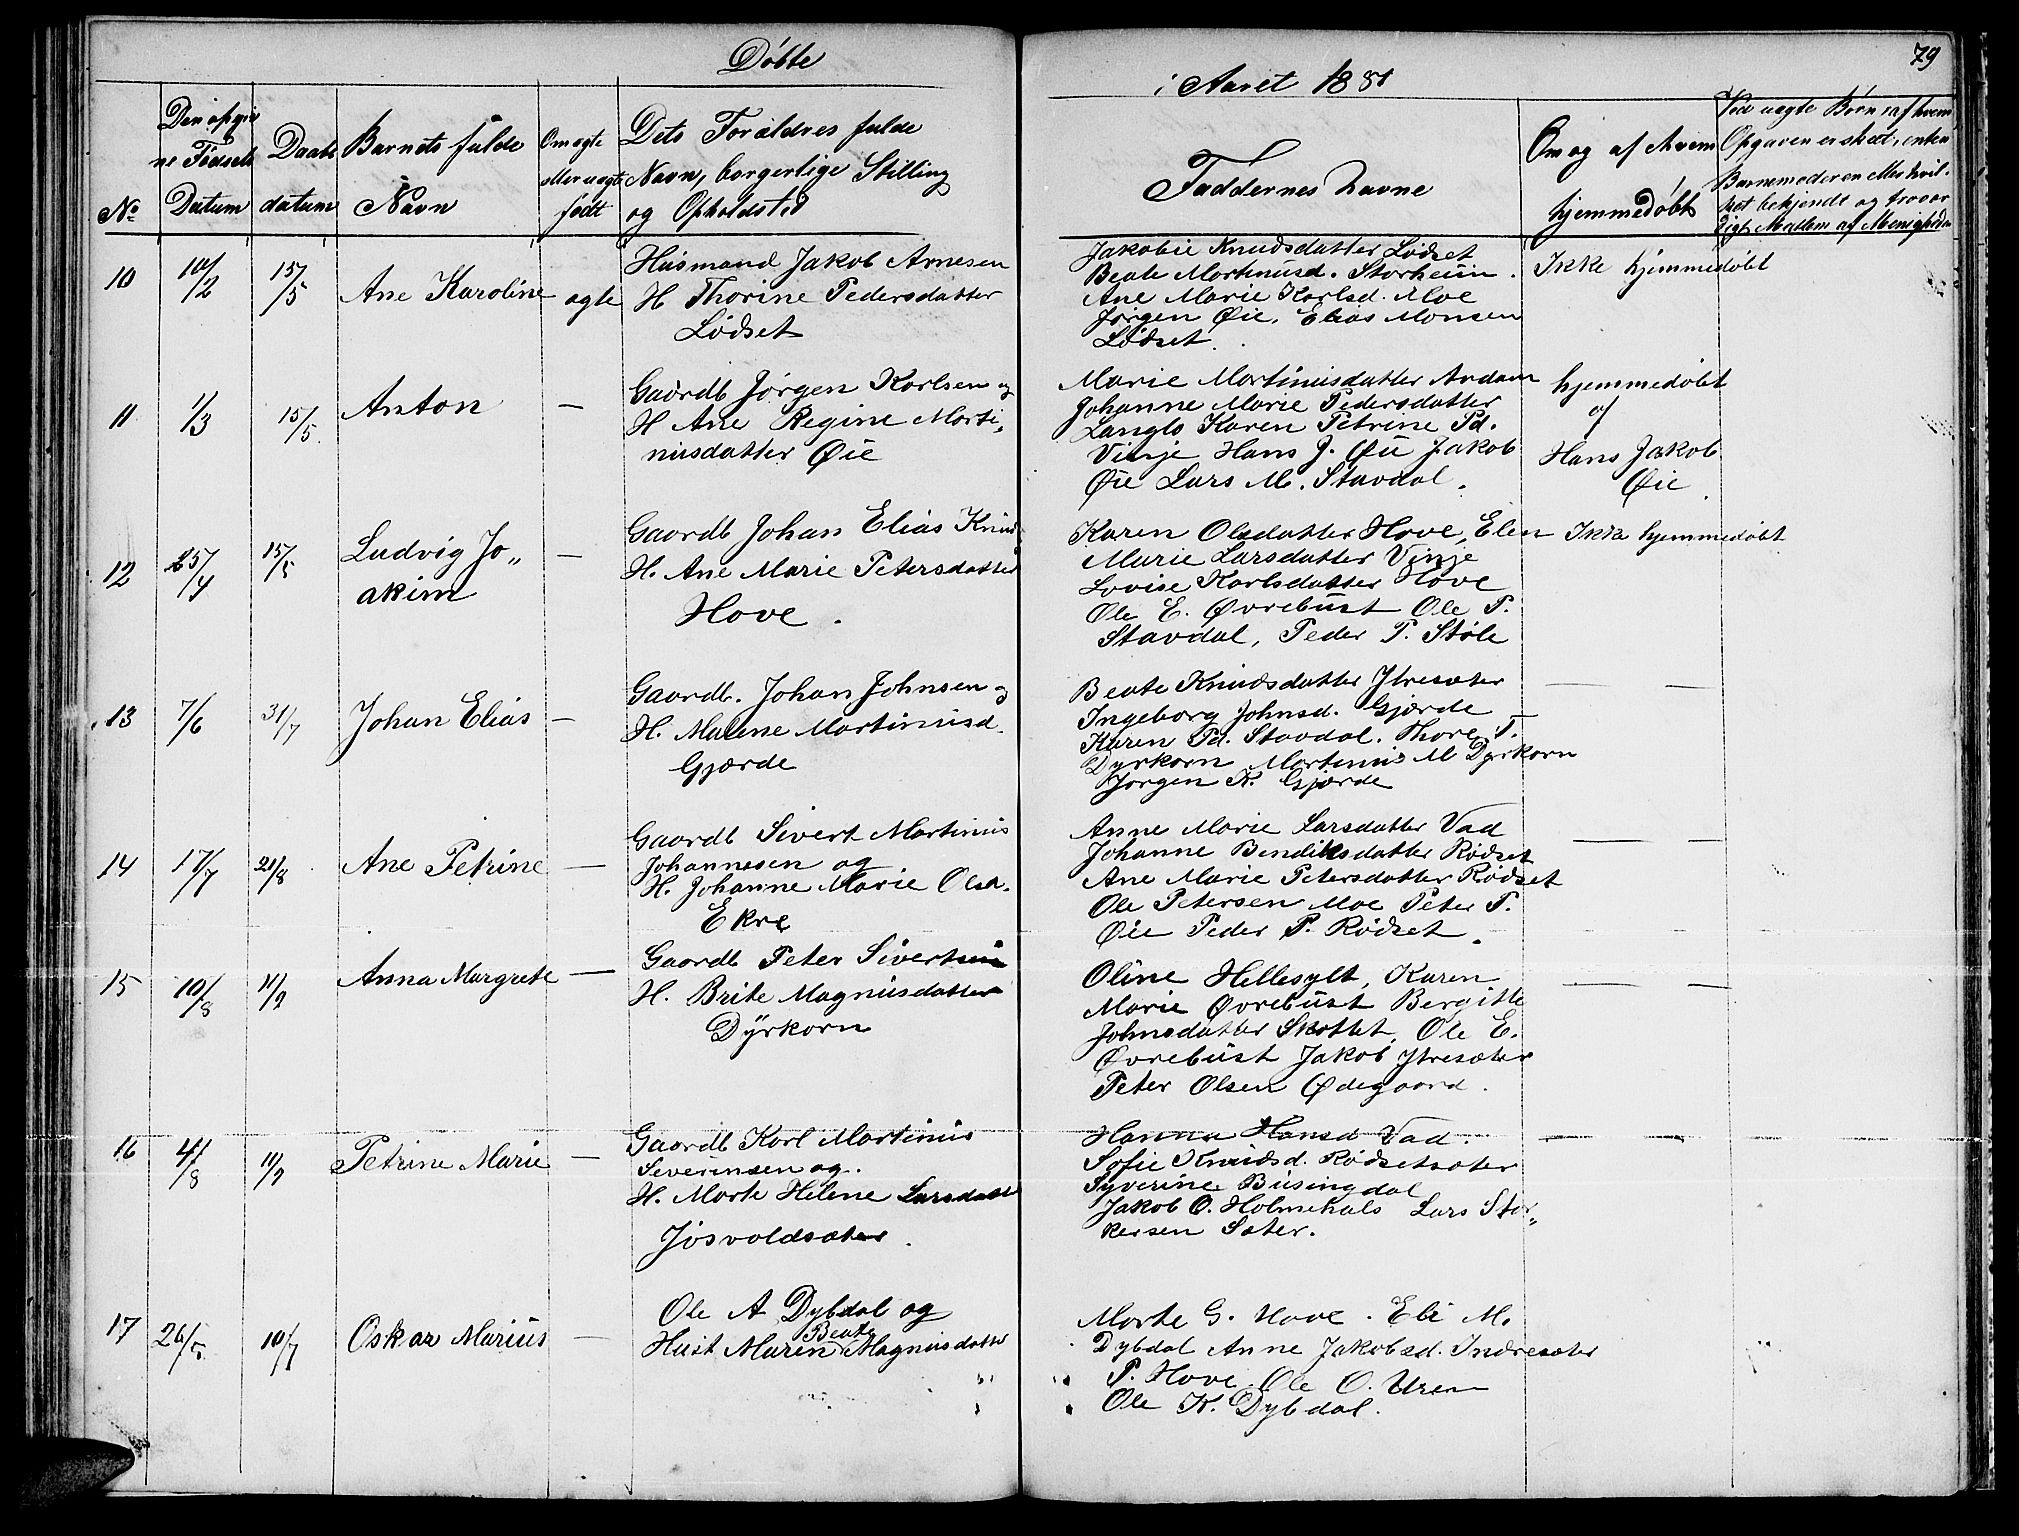 Døbte
i Aaret 1881
79
No
Den opgiv
ne Fødsels
Datum
Daabs
datum
Barnets fulde
Navn
Om ægte
eller uægte
født
Dets Forældres fulde
Navn, borgerlige Stilling
og Opholdsted
Faddernes Navne
Om og af hvem
hjemmedøbt
Ved uægte Børn af hvem
Opgaven er skeet, enten
Barnemoderen eller hvil-
ket bekjendt og trovær
digt Medlem af Menigheden
10
10/2
15/5
Ane Karoline
ægte
Husmand Jakob Arnesen
H Thorine Pedersdatter
Lødset
Jakobie Knudsdatter Lødset
Beate Martinusd. Storheim.
Ane Marie Karlsd. Moe
Jørgen Øie, Elias Monsen
Lødset.
Ikke hjemmedøbt
11
1/3
15/5.
Anton
—
Gaardb Jørgen Karlsen og
H Ane Regine Marti„
nusdatter Øie
Marie Martinusdatter Andam
Johanne Marie Pedersdatter
Langlo Karen Petrine Pd.
Vinje Hans J. Øie Jakob
Øie Lars M. Stavdal.
hjemmedøbt
af
Hans Jakob
Øie.
12
25/4
15/5
Ludvig Jo„
akim
—
Gaardb Johan Elias Knud
H. Ane Marie Petersdatter
Hove.
Karen Olsdatter Hove, Elen
Marie Larsdatter Vinje
Lovise Karlsdatter Hove
Ole E. Øvrebust Ole P.
Stavdal, Peder P. Støle
Ikke hjemmedøbt
13
7/6
31/7
Johan Elias
—
Gaardb. Johan Johnsen og
H. Malene Martinusd.
Gjærde
Beate Knudsdatter Ytresæter
Ingeborg Johnsd. Gjærde
Karen Pd. Stavdal. Thore T.
Dyrkorn Martinus M Dyrkorn
Jørgen K. Gjærde
— —
14
17/7
21/8
Ane Petrine
—
Gaardb Sivert Martinus
Johannesen og
H. Johanne Marie Olsd.
Ekre
Anne Marie Larsdatter Vad
Johanne Bendiksdatter Rødset
Ane Marie Petersdatter Rødset
Ole Petersen Moe Peter P.
Øie Peder P. Rødset.
— —
15
10/8
11/9
Anna Margrete
—
Gaardb Peter Sivertsen
H. Brite Magnusdatter
Dyrkorn
Oline Hellesylt, Karen
Marie Øvrebust Bergitte
Johnsdatter Skottet, Ole E.
Øvrebust Jakob Ytresæter
Peter Olsen Ødegaard.
— —
16
4/8
11/9
Petrine Marie
—
Gaardb Karl Martinus
Severinsen og.
H. Marte Helene Larsdatt
Josvoldsæter.
Hanna Hansd Vad.
Sofie Knudsd. Rødsetsæter
Syverine Busingdal
Jakob O. Holmehals Lars Stor„
kersen Sæter.
— —
17
26/5
10/7
Oskar Marius
—
Ole A Dybdal og
Beate
Hust Maren Magnusdatter
Marte G. Hove. Eli M.
Dybdal Anne Jakobsd. Indresæter
P. Hove Ole O. Uren
Ole K. Dybdal.